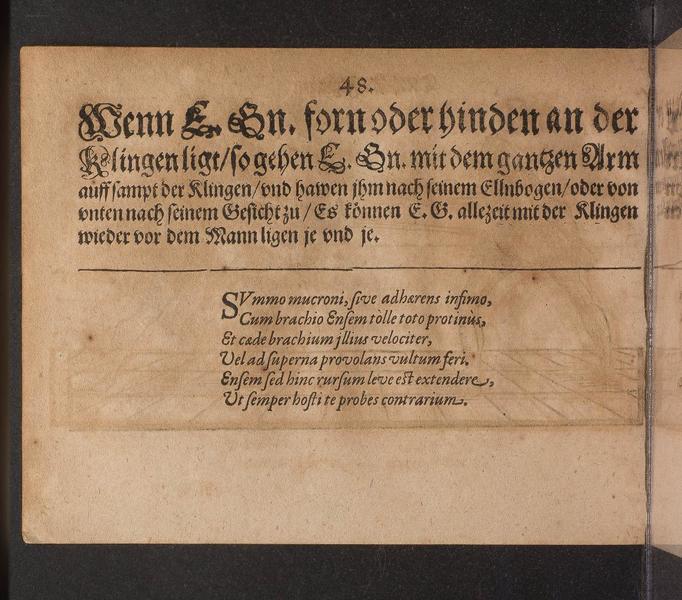 48.
Wenn E. Gn. forn oder hinden an der
Klingen ligt/ so gehen E. Gn. mit dem gantzen Arm
auff sampt der Klingen/ vnd hawen jhm nach seinem Ellnbogen/ oder von
vnten nach seinem Gesicht zu/ Es können E. G. allezeit mit der Klingen
wieder vor dem Mann ligen je vnd je.
SVmmo mucroni, sive adhærens infimo,
Cum brachio Ensem tòlle toto protinùs,
Et cæde brachium jllius velociter,
Vel ad superna provolans vultum feri.
Ensem sed hinc rursum leve est extendere,
Ut semper hosti te probes contrarium.